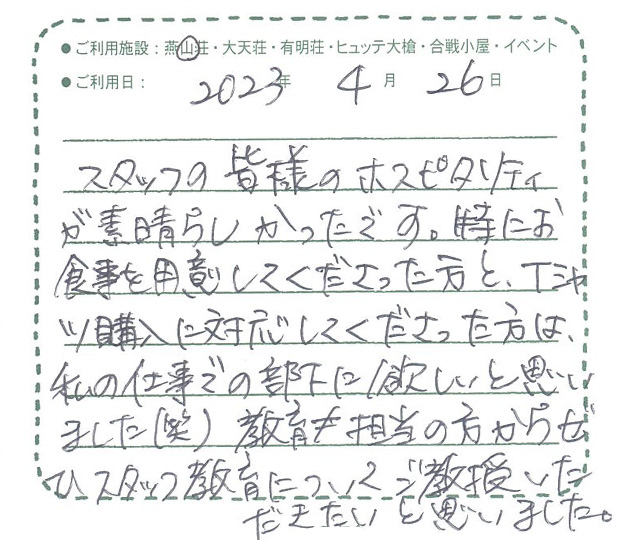 ●ご利用施設：燕山荘・大天荘・有明荘・ヒュッテ大槍・合戦小屋・イベント
●ご利用日： 2023年 4月 26日
スタッフの皆様のホスピタリティ
が素晴らしかったです。特にお
食事を用意してくださった方と、Tシャ
ツ購入に対応してくださった方は、
私の仕事での部下に欲しいと思い
ました(笑) 教育も担当の方からぜ
ひスタッフ教育についてご教授いた
だきたいと思いました。